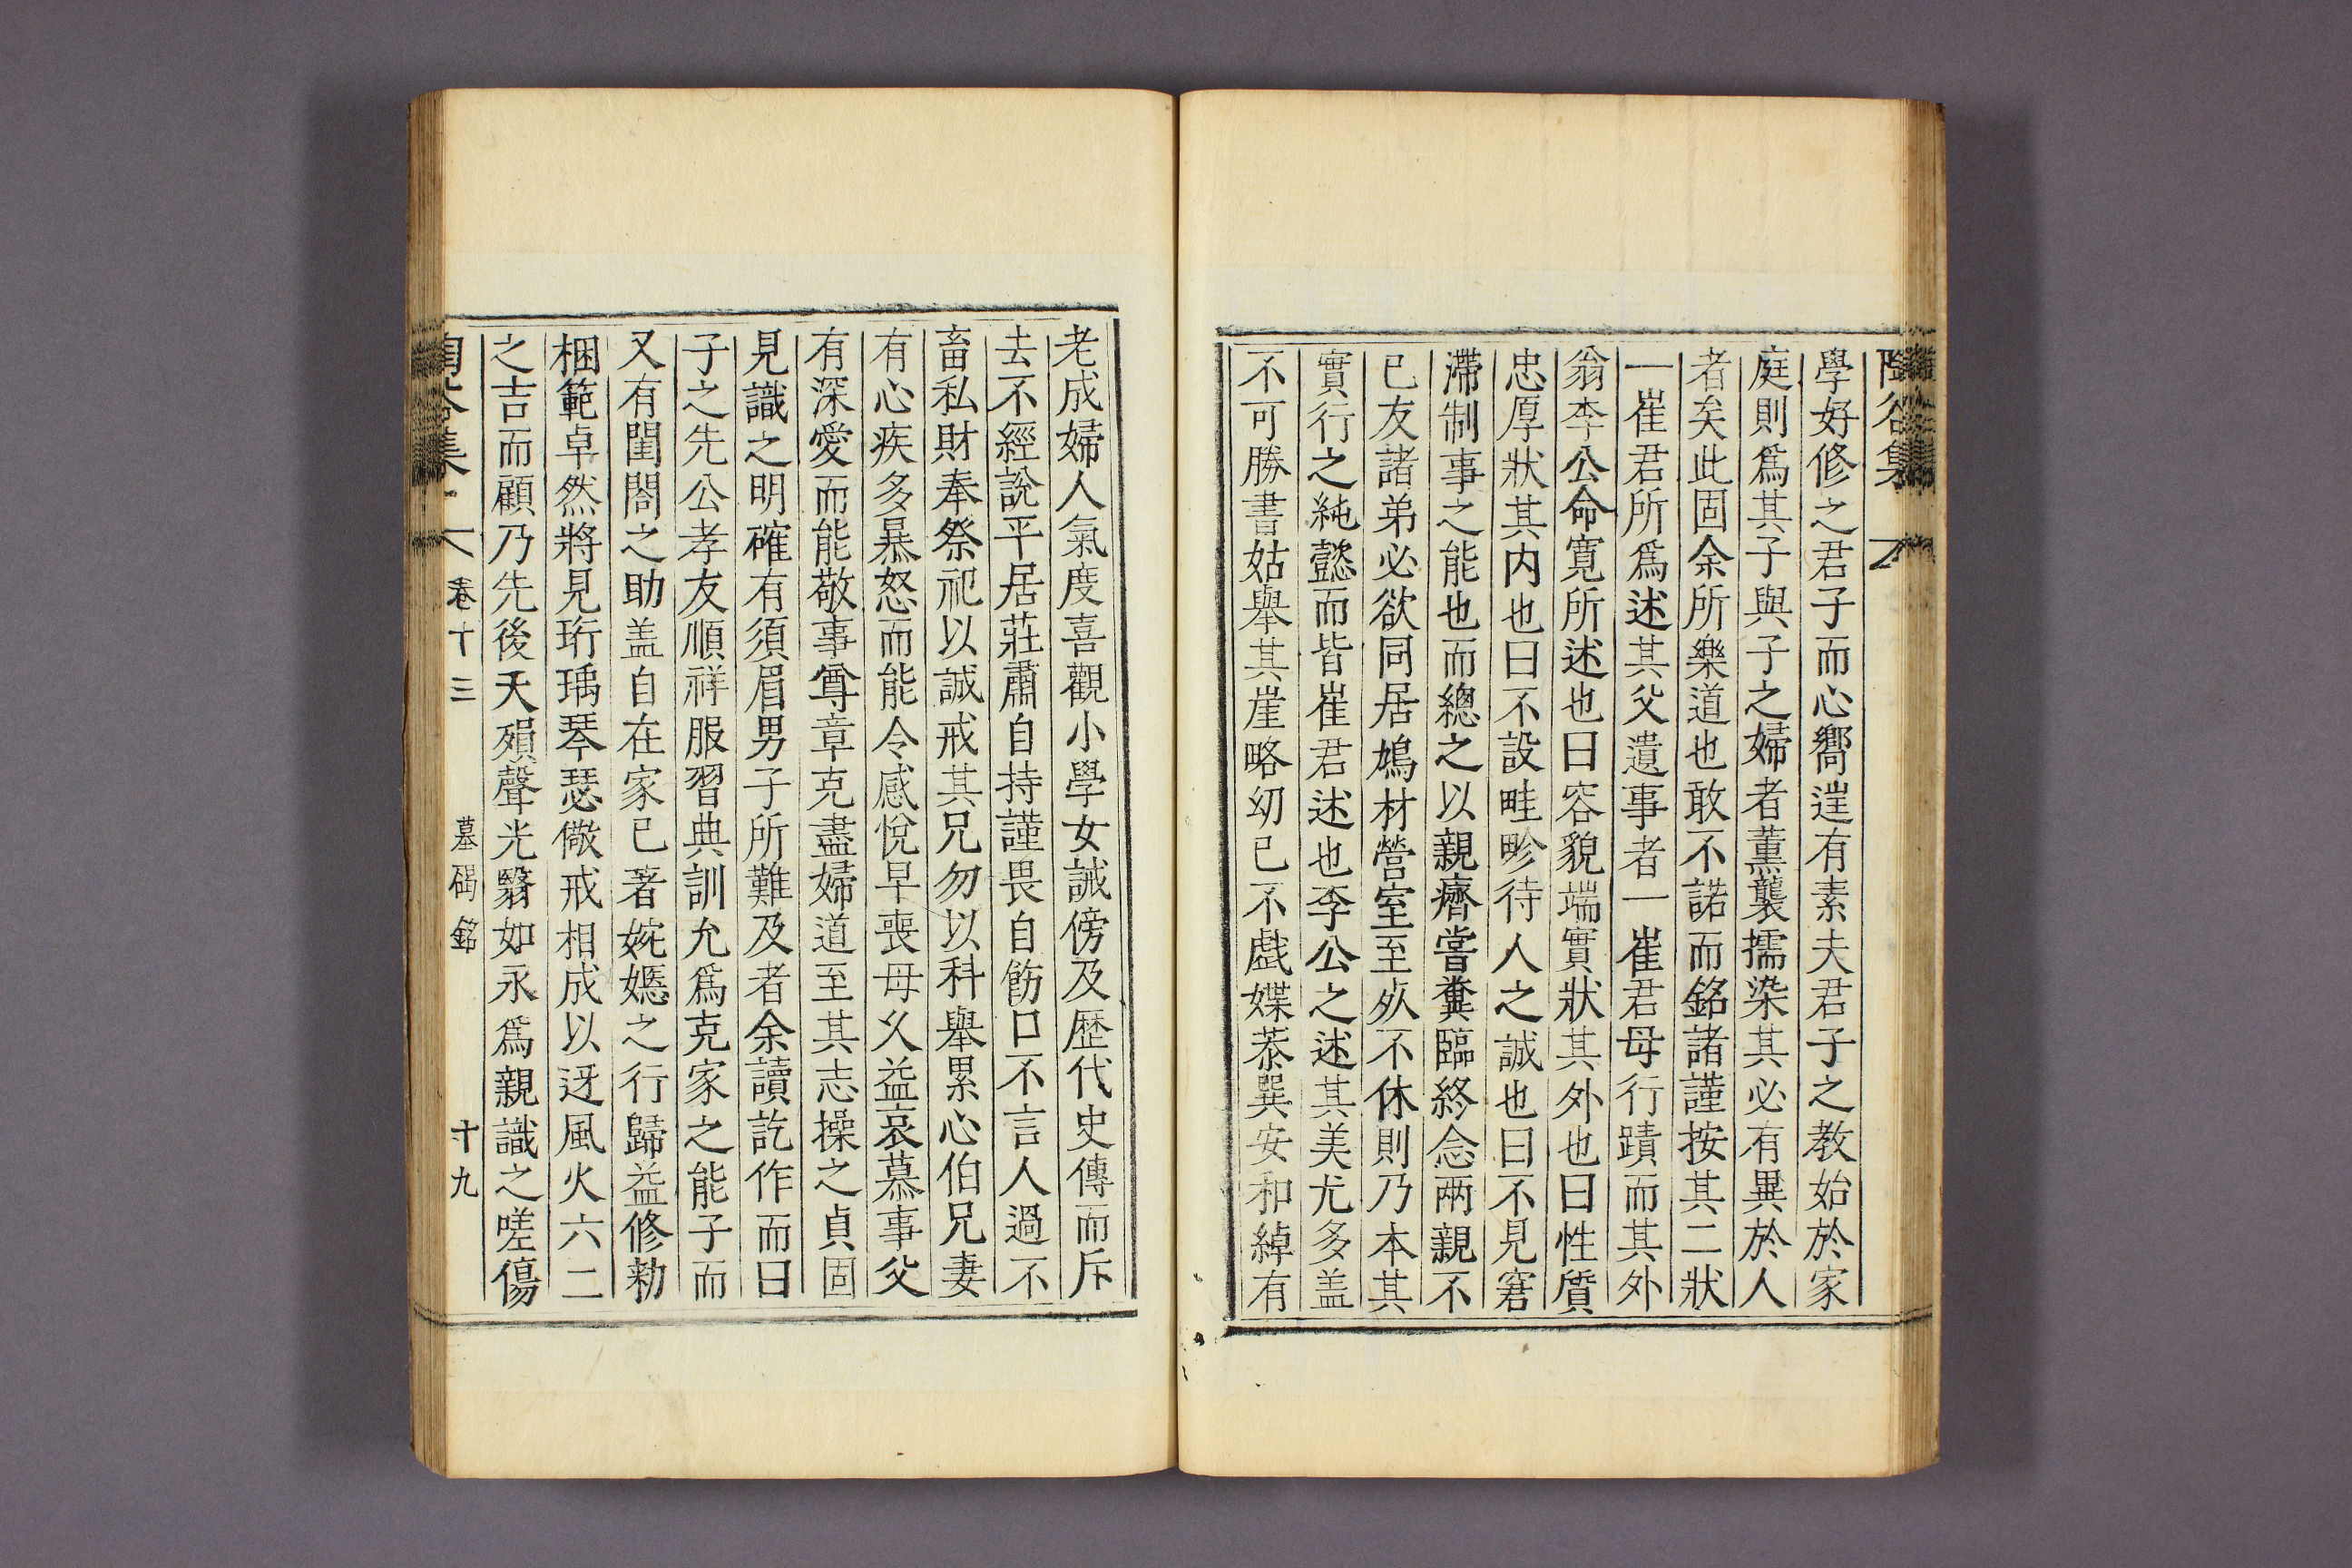 陶谷集
學好修之君子而心嚮逞有素夫君子之教始於家
庭則爲其子與子之婦者薰襲擩染其必有異於人
者矣此固余所樂道也敢不諾而銘諸謹按其二狀
一崔君所爲述其父遺事者一崔君母行蹟而其外
翁李公命寬所述也曰容貌端實狀其外也曰性質
忠厚狀其内也曰不設畦畛待人之誠也曰不見窘
滯制事之能也而總之以親癠嘗糞臨終念兩親不
已友諸弟必欲同居鳩材營室至死不休則乃本其
實行之純懿而皆崔君述也李公之述其美尤多盖
不可勝書姑舉其崖略幼已不戱媟恭巽安和綽有
老成婦人氣度喜觀小學女誡傍及歷代史傳而斥
去不經說平居莊肅自持謹畏自飭口不言人過不
畜私財奉祭祀以誠戒其兄勿以科舉累心伯兄妻
有心疾多暴怒而能令感悅早喪母久益哀慕事父
有深愛而能敬事尊章克盡婦道至其志操之貞固
見識之明確有須眉男子所難及者余讀訖作而曰
子之先公孝友順祥服習典訓允爲克家之能子而
又有閨閤之助盖自在家已著婉嫕之行歸益修勑
梱範卓然將見珩瑀琴瑟儆戒相成以迓風火六二
之吉而顧乃先後夭殞聲光翳如永爲親識之嗟傷
陶谷集 卷十三 墓碣銘 十九